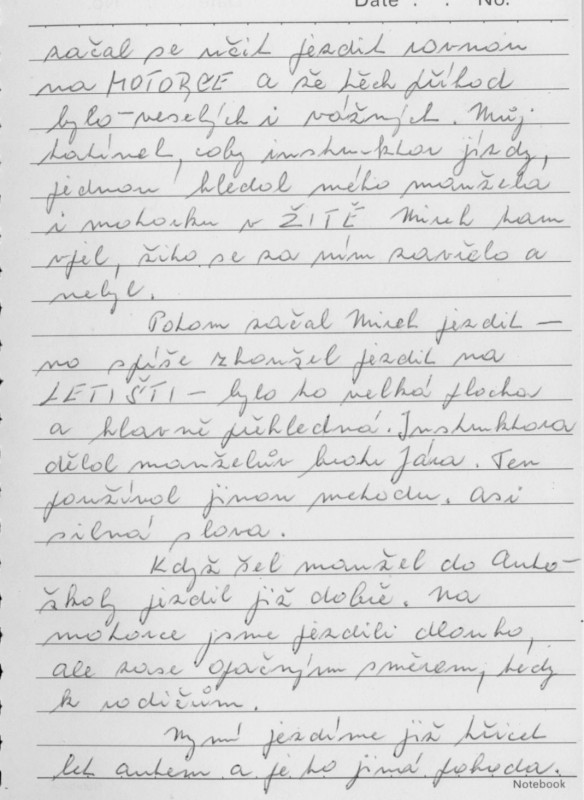 Date . . No.
začal se učit jezdit rovnou
na MOTORCE a že těch příhod
bylo - veselých i vážných. Můj
tatínek, coby instruktor jízdy,
jednou hledal mého manžela
i motorku v ŽITĚ Mirek tam
vjel, žito se za ním zavřelo a
nebyl.
Potom začal Mirek jezdit -
no spíše zkoušel jezdit na
LETIŠTI - bylo to velká plocha
a hlavně přehledná. Instruktora
dělal manželův bratr Jára. Ten
používal jinou metodu. Asi
silná slova.
Když šel manžel do Auto-
školy jezdil již dobře. Na
motorce jsme jezdili dlouho,
ale zase opačným směrem, tedy
k rodičům.
Nyní jezdíme již třicet
let autem a je to jiná pohoda.
Notebook